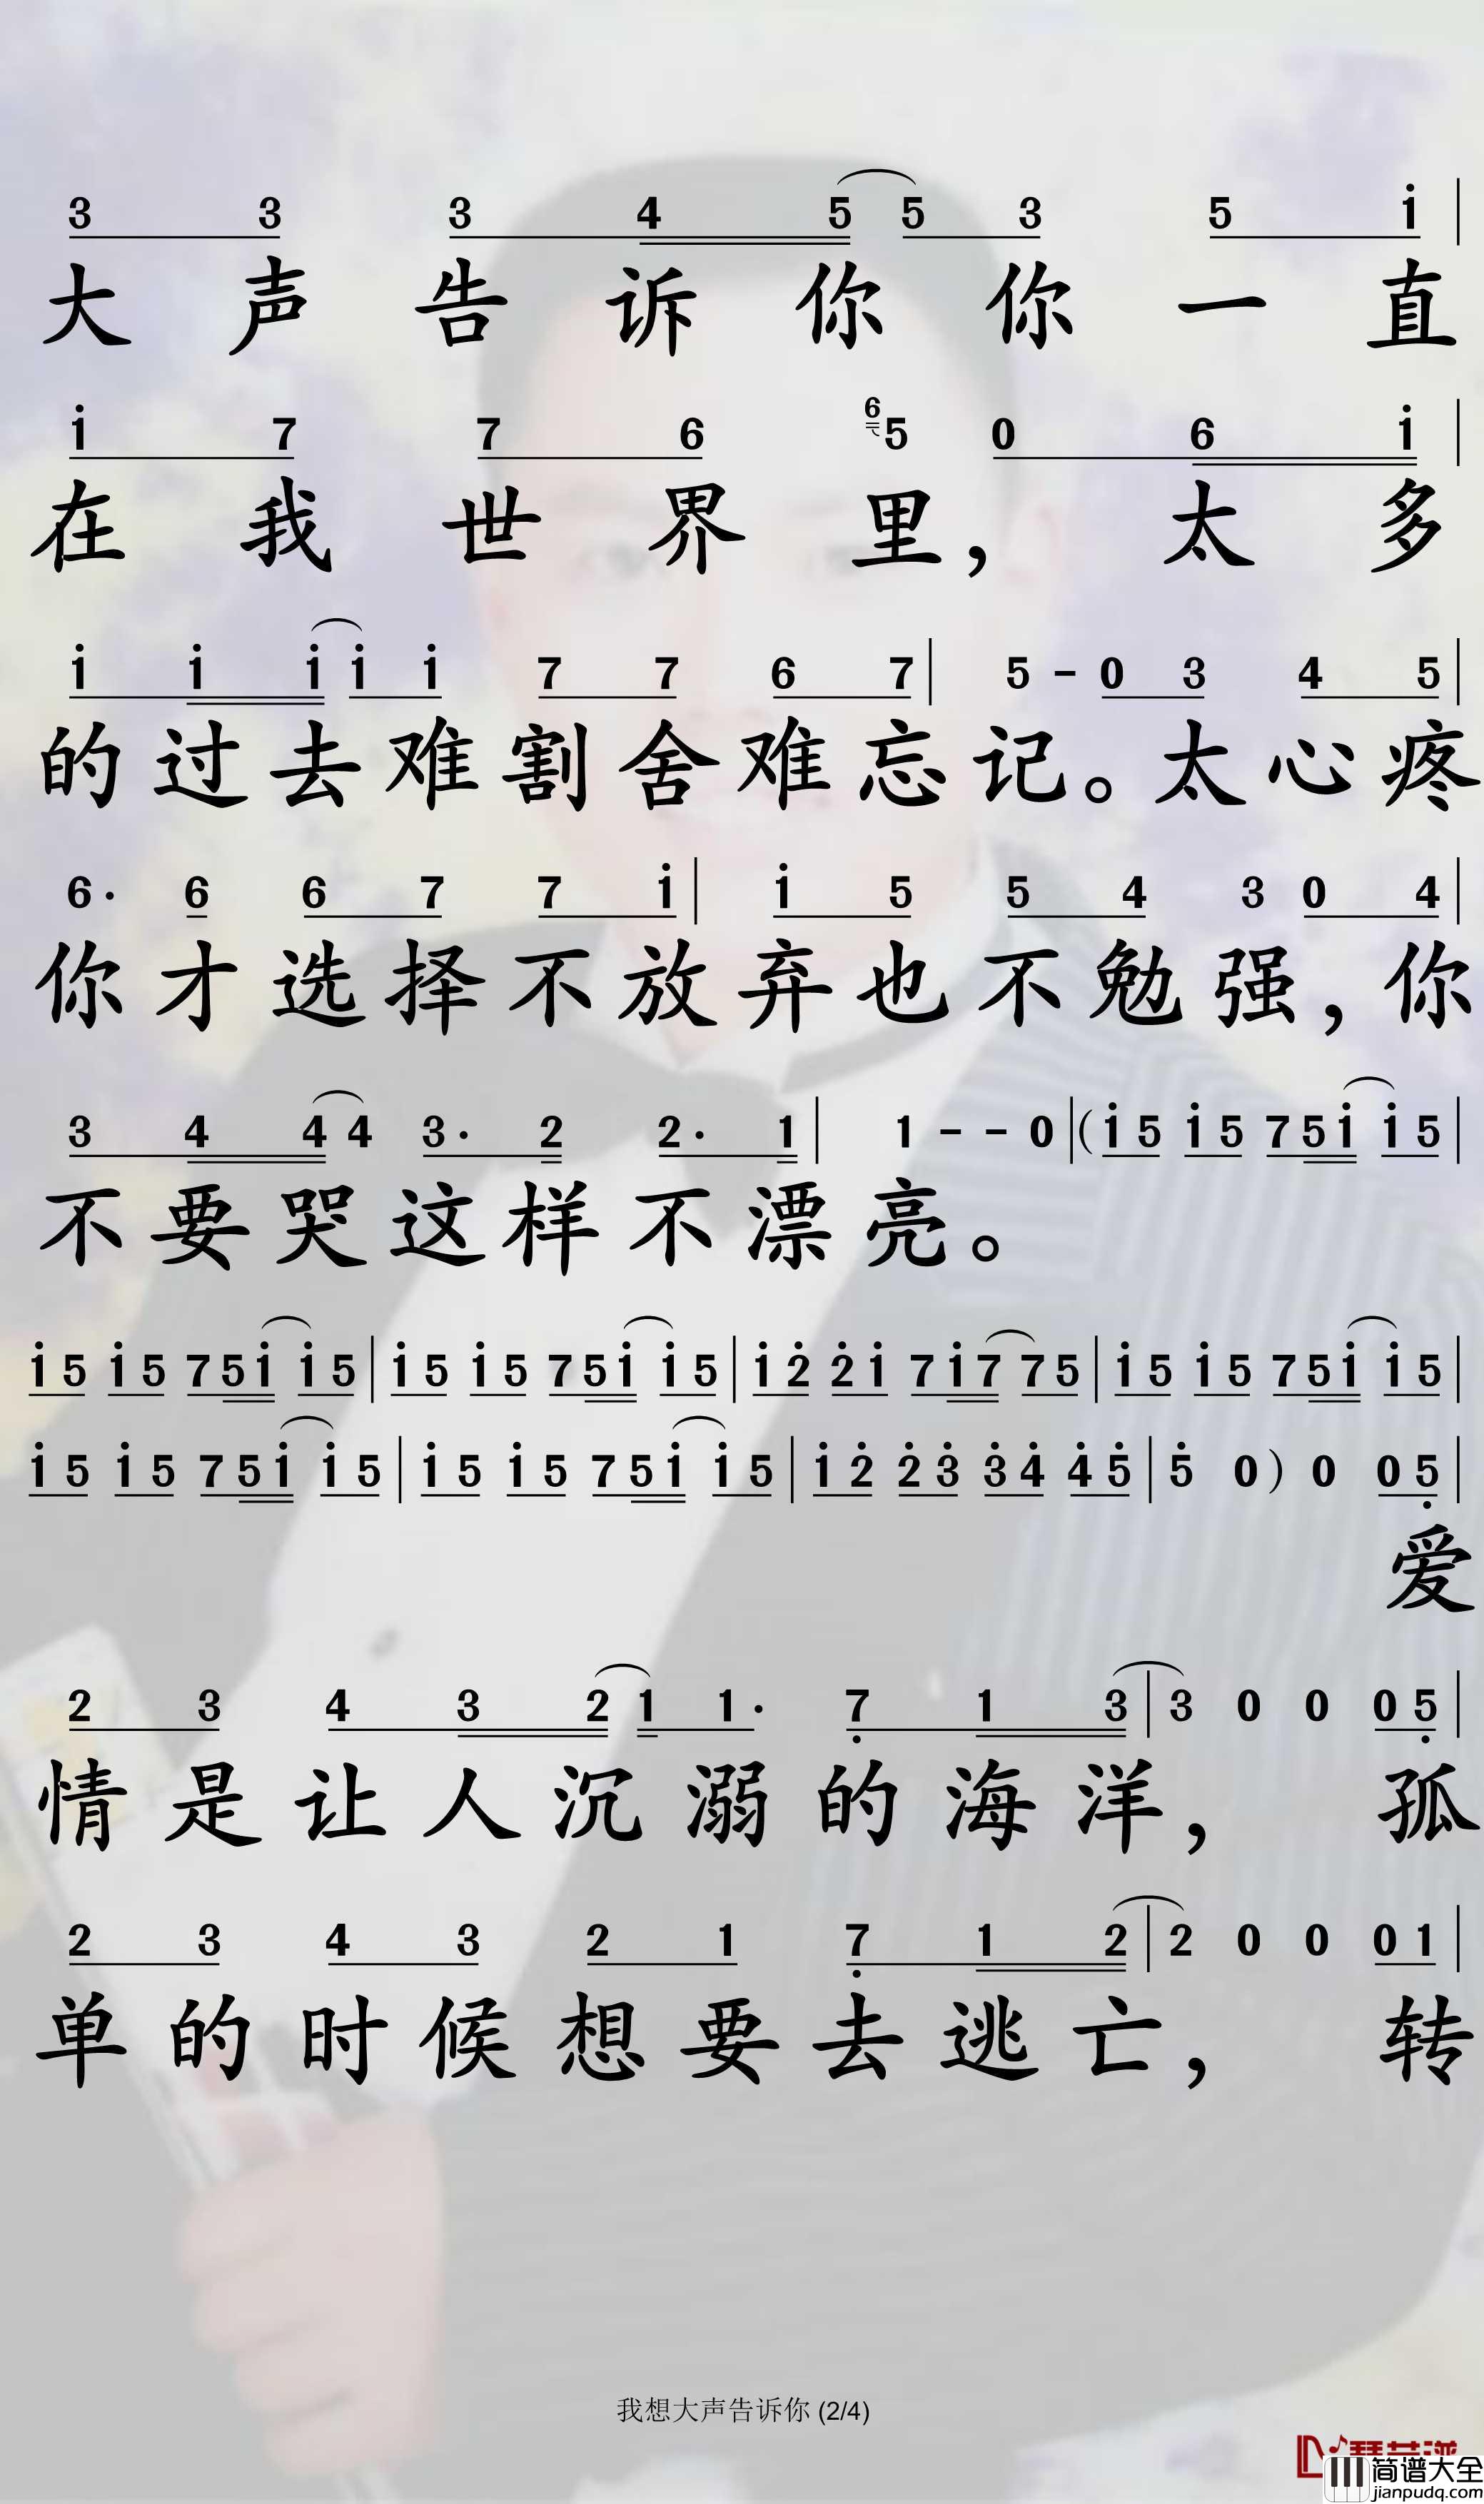 3 3 3 4 5 5 3 5 i |
大 声 告 诉 你 你 一 直
i 7 7 6 6 5 0 6 i |
在 我 世 界 里， 太 多
i i i i i 7 7 6 7 | 5 - 0 3 4 5 |
的 过 去 难 割 舍 难 忘 记。太 心 疼
6· 6 6 7 7 i | i 5 5 4 3 0 4 |
你 才 选 择 不 放 弃 也 不 勉 强，你
3 4 4 4 3· 2 2· 1 | 1 - - 0 | (i 5 i 5 7 5 i i 5 |
不 要 哭 这 样 不 漂 亮。
i 5 i 5 7 5 i i 5 | i 5 i 5 7 5 i i 5 | i 2̇ 2̇ i 7 i 7 7 5 | i 5 i 5 7 5 i i 5 |
i 5 i 5 7 5 i i 5 | i 5 i 5 7 5 i i 5 | i 2̇ 2̇ 3̇ 3̇ 4̇ 4̇ 5̇ | 5̇ 0 ) 0 0 5̣ |
爱
2 3 4 3 2 1 1· 7̣ 1 3 | 3 0 0 0 5̣ |
情 是 让 人 沉 溺 的 海 洋， 孤
2 3 4 3 2 1 7̣ 1 2 | 2 0 0 0 1 |
单 的 时 候 想 要 去 逃 亡， 转
我想大声告诉你 (2/4)
简谱大全
jianpudq.com